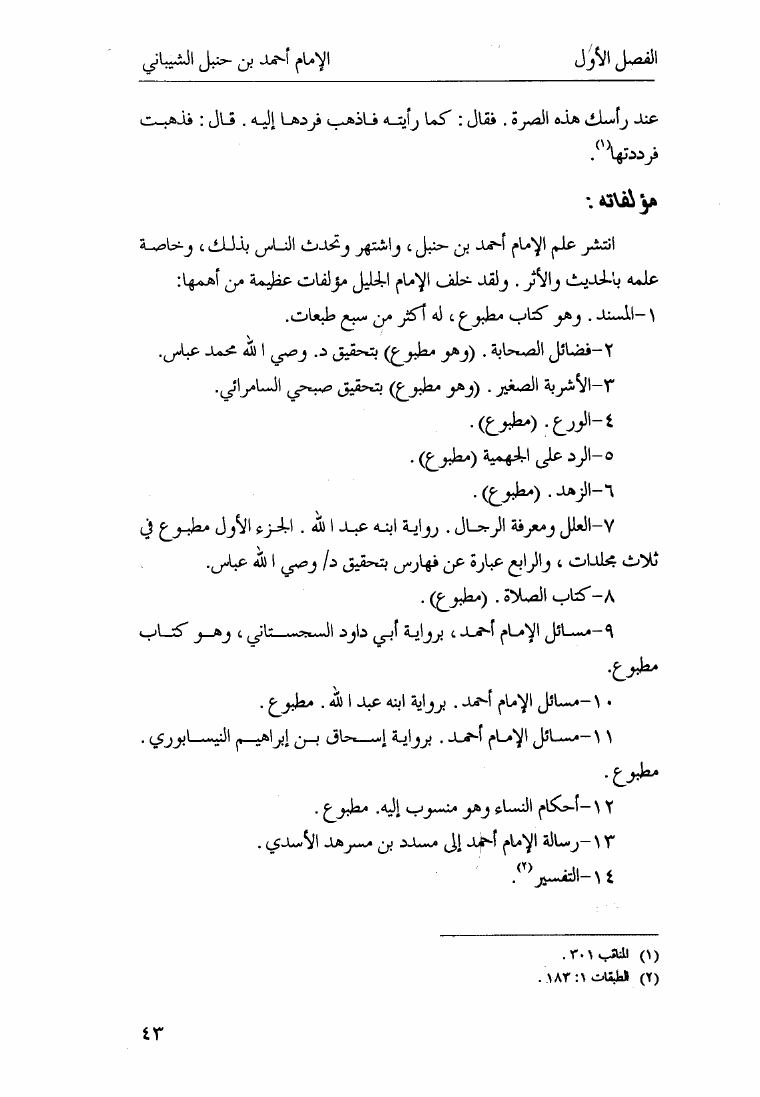 الفصل الأول
الإمام أحمد بن حنبل الشيباني
عند رأسك هذه الصرة . فقال : كما رأيته فاذهب فردها إليه . قال : فذهبت
فرددتها(١).
مؤلفاته :
انتشر علم الإمام أحمد بن حنبل ، واشتهر وتحدث الناس بذلك ، وخاصة
علمه بالحديث والأثر . ولقد خلف الإمام الجليل مؤلفات عظيمة من أهمها:
١-المسند . وهو كتاب مطبوع ، له أكثر من سبع طبعات.
٢-فضائل الصحابة . (وهو مطبوع) بتحقيق د. وصي الله محمد عباس.
٣-الأشربة الصغير . (وهو مطبوع) بتحقيق صبحي السامرائي.
٤-الورع . (مطبوع) .
٥-الرد على الجهمية (مطبوع) .
٦-الزهد . (مطبوع) .
٧-العلل ومعرفة الرجال . رواية ابنه عبد الله . الجزء الأول مطبوع في
ثلاث مجلدات ، والرابع عبارة عن فهارس بتحقيق د/ وصي الله عباس.
٨-كتاب الصلاة . (مطبوع) .
٩-مسائل الإمام أحمد ، برواية أبي داود السجستاني ، وهو كتاب
مطبوع.
١٠-مسائل الإمام أحمد . برواية ابنه عبد الله . مطبوع .
١١-مسائل الإمام أحمد . برواية إسحاق بن إبراهيم النيسابوري .
مطبوع .
١٢-أحكام النساء وهو منسوب إليه. مطبوع .
١٣-رسالة الإمام أحمد إلى مسدد بن مسرهد الأسدي .
١٤-التفسير(٢).
(١) المناقب ٣٠١ .
(٢) الطبقات ١: ١٨٣ .
٤٣